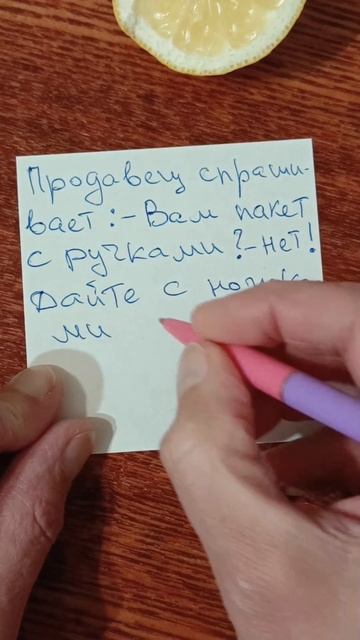 Продавец спраши-
вает:-Вам пакет
с ручками?-нет!
Дайте с ножка
ми